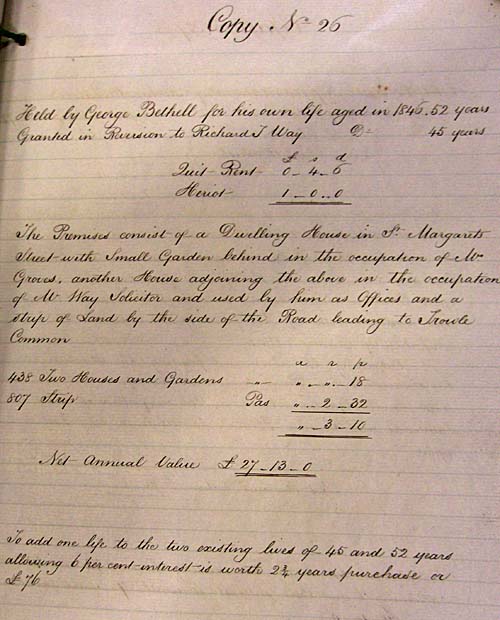 Copy Nº 26
Held by George Bethell for his own life aged in 1846. 52 years
Granted in Reversion to Richard T Way Dº 45 years
£ s d
Quit Rent 0_4_6
Heriot 1_0_0
The Premises consist of a Dwelling House in St. Margarets
Street with Small Garden behind in the occupation of Mr
Groves, another House adjoining the above in the occupation
of Mr Way Solicitor and used by him as Offices and a
strip of Land by the side of the Road leading to Trowle
Common
a r p
438 Two Houses and Gardens „ „_„_18
807 Strip Pas „_2_32
„_3_10
Net Annual Value £27_13_0
To add one life to the two existing lives of 45 and 52 years
allowing 6 per cent interest is worth 2¾ years purchase or
£76